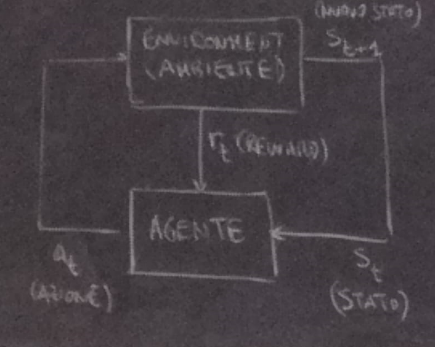 (NUOVO STATO)
S_{t+1}
ENVIRONMENT
(AMBIENTE)
r_t (REWARD)
AGENTE
a_t
(AZIONE)
S_t
(STATO)